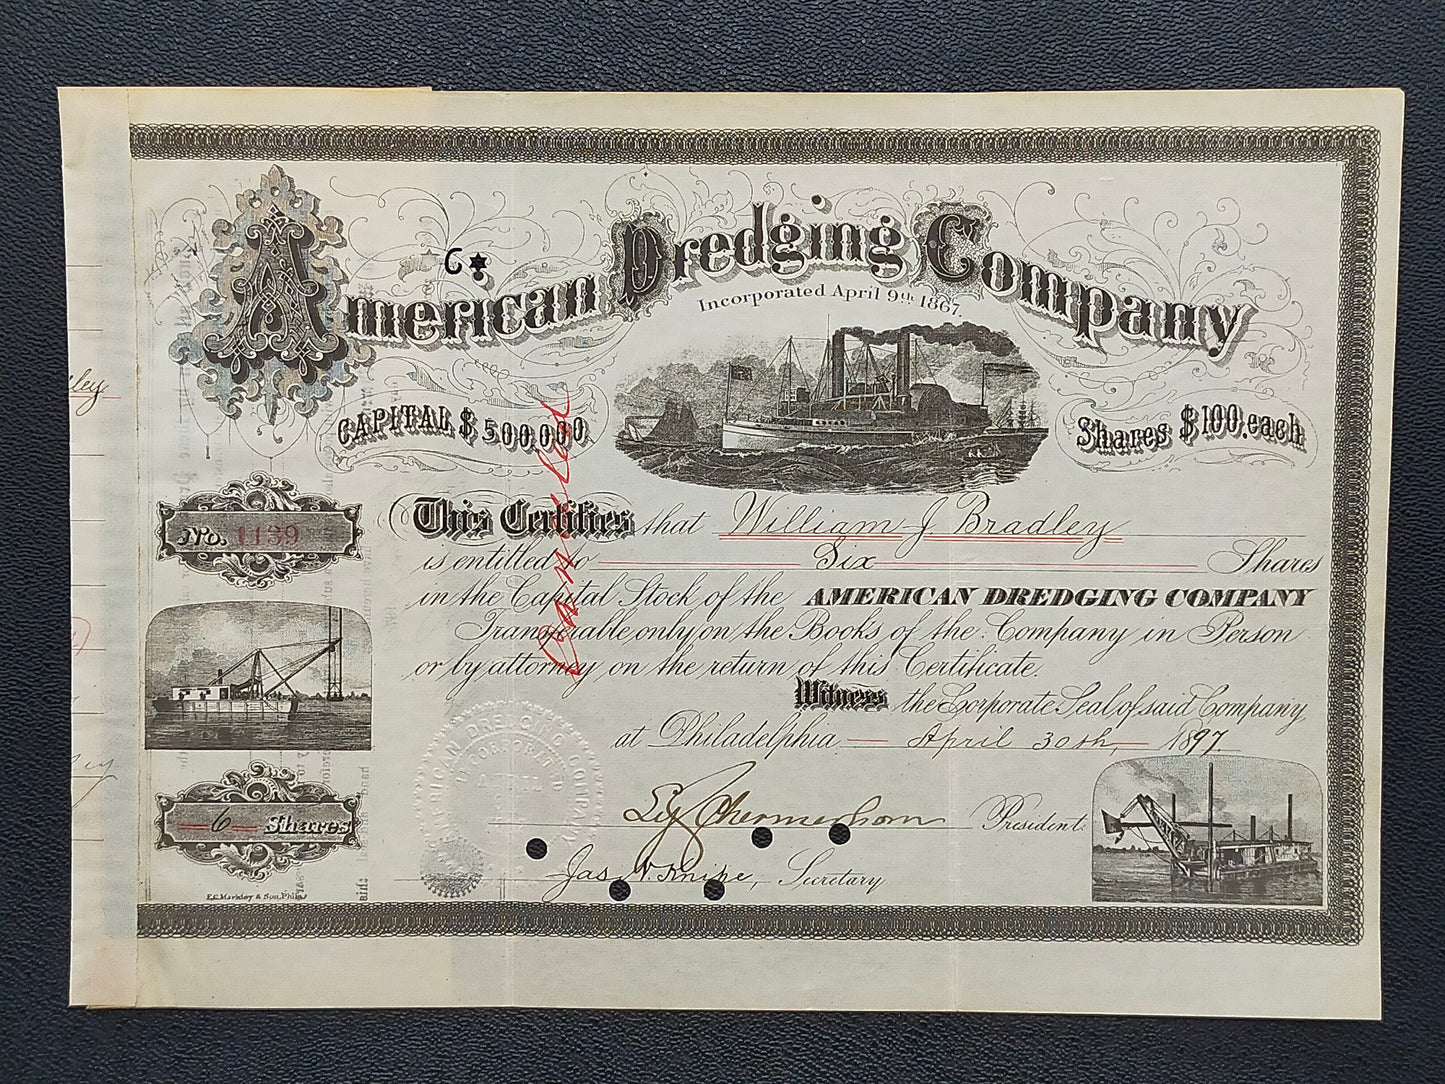 American Dredging Company
Incorporated April 9th 1867.
CAPITAL $500,000
Shares $100, each
Cancelled
No. 1139
This Certifies that William J. Bradley
is entitled to Six Shares
in the Capital Stock of the AMERICAN DREDGING COMPANY
Transferable only on the Books of the Company in Person
or by attorney on the return of this Certificate.
Witness the Corporate Seal of said Company
at Philadelphia April 30th 1897.
AMERICAN DREDGING COMPANY
INCORPORATED
President.
6 Shares
Jas. Secretary
E.C. Markley & Son, Phila